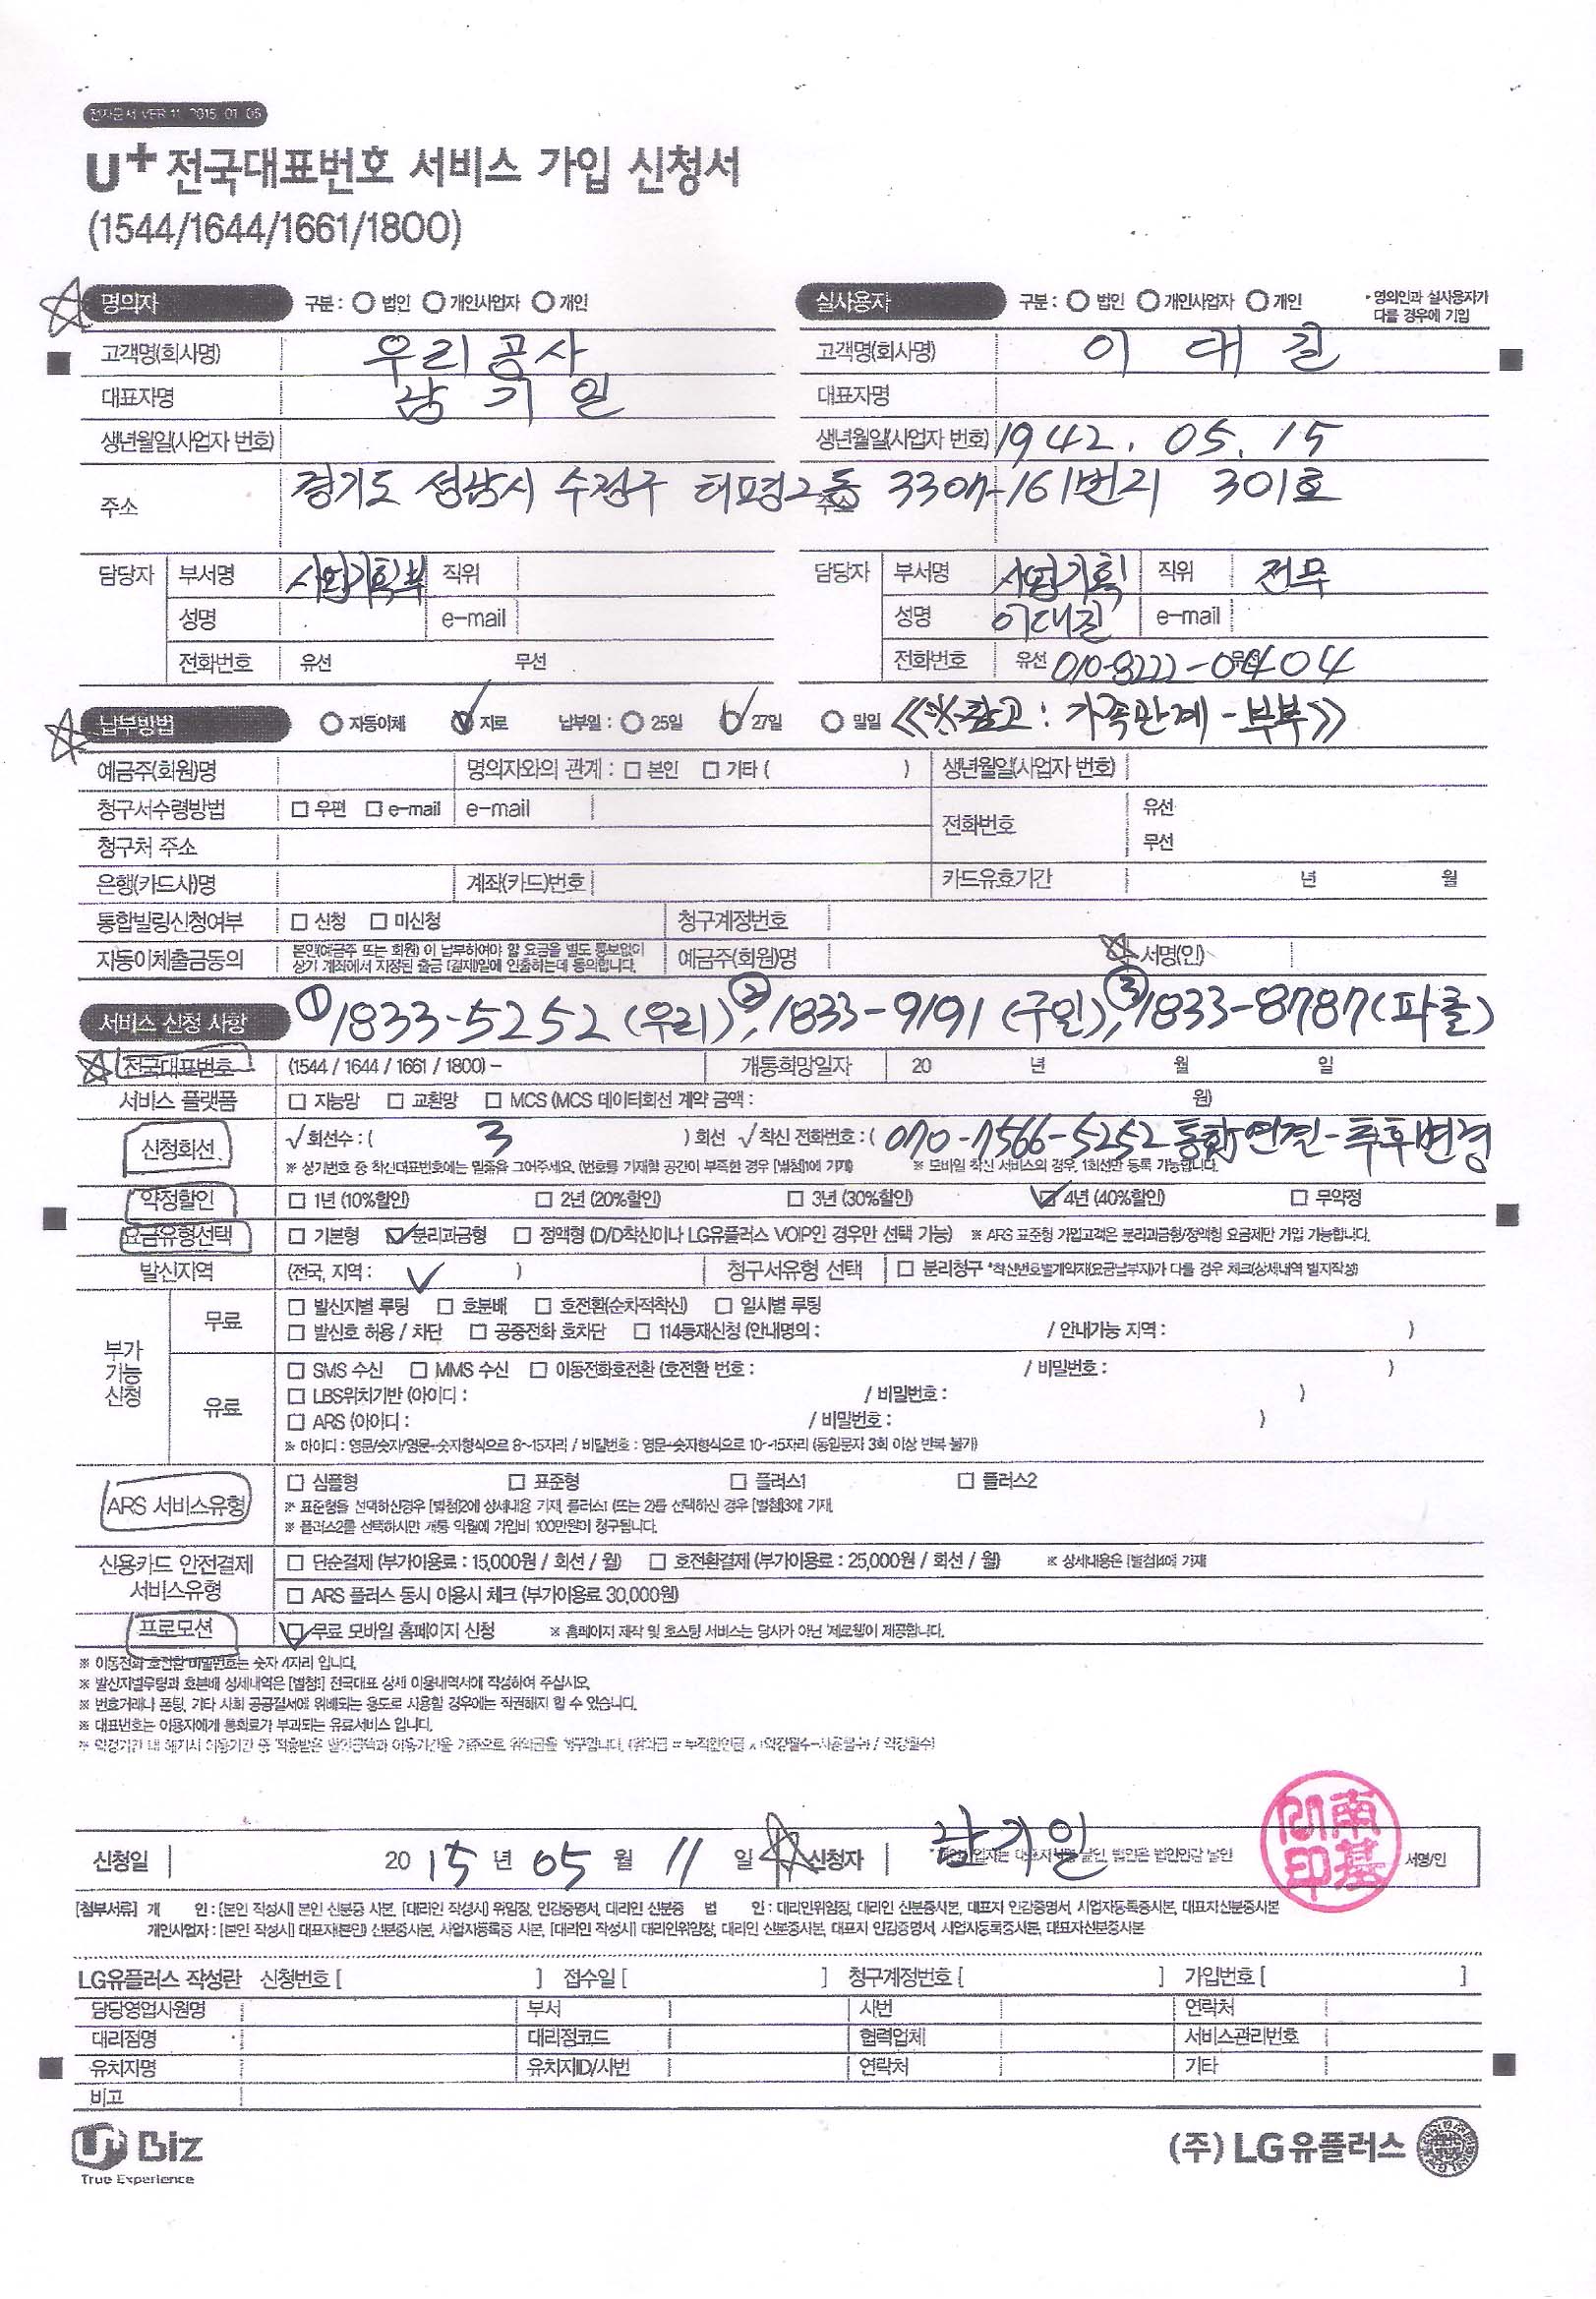 전자문서 VER 11 2015. 01. 06
U+ 전국대표번호 서비스 가입 신청서
(1544/1644/1661/1800)
명의자 구분 : ○ 법인 ○ 개인사업자 ○ 개인
고객명(회사명) 우리공사
대표자명 남기일
생년월일(사업자 번호)
주소 경기도 성남시 수정구 태평2동 3307-161번지 301호
담당자 부서명 사업기획부 직위
성명 e-mail
전화번호 유선 무선
실사용자 구분 : ○ 법인 ○ 개인사업자 ○ 개인 • 명의인과 실사용자가 다를 경우에 기입
고객명(회사명) 이대길
대표자명
생년월일(사업자 번호) 1942. 05. 15
주소
담당자 부서명 사업기획 직위 전무
성명 이대길 e-mail
전화번호 유선 010-8222-0404 무선
납부방법 ○ 자동이체 ○ 지로 납부일 : ○ 25일 ○ 27일 ○ 말일 《※참고 : 가족관계 - 부부》
예금주(회원)명 명의자와의 관계 : □ 본인 □ 기타 ( ) 생년월일(사업자 번호)
청구서수령방법 □ 우편 □ e-mail e-mail 전화번호 유선
청구처 주소 무선
은행(카드사)명 계좌(카드)번호 카드유효기간 년 월
통합빌링신청여부 □ 신청 □ 미신청 청구계정번호
자동이체출금동의 본인(예금주 또는 회원) 이 납부하여야 할 요금을 별도 통보없이 상기 계좌에서 지정된 출금 (결제)일에 인출하는데 동의합니다. 예금주(회원)명 서명(인)
서비스 신청 사항 ① 1833-5252 (우리), ② 1833-9191 (구인), ③ 1833-8787 (파출)
전국대표번호 (1544 / 1644 / 1661 / 1800) – 개통희망일자 20 년 월 일
서비스 플랫폼 □ 지능망 □ 교환망 □ MCS (MCS 데이터회선 계약 금액 : 원)
신청회선 √ 회선수 : ( 3 ) 회선 √ 착신 전화번호 : ( 070-7566-5252 통합연결-추후변경
※ 상기번호 중 착신대표번호에는 밑줄을 그어주세요. (번호를 기재할 공간이 부족한 경우 [별첨]1에 기재) ※ 모바일 착신 서비스의 경우, 1회선만 등록 가능합니다.
약정할인 □ 1년 (10%할인) □ 2년 (20%할인) □ 3년 (30%할인) □ 4년 (40%할인) □ 무약정
요금유형선택 □ 기본형 □ 분리과금형 □ 정액형 (D/D착신이나 LG유플러스 VOIP인 경우만 선택 가능) ※ ARS 표준형 가입고객은 분리과금형/정액형 요금제만 가입 가능합니다.
발신지역 (전국, 지역 : ) 청구서유형 선택 □ 분리청구 *착신번호별계약자(요금납부자)가 다를 경우 체크(상세내역 별지작성)
부가 기능 신청
무료 □ 발신지별 루팅 □ 호분배 □ 호전환(순차적착신) □ 일시별 루팅
□ 발신호 허용 / 차단 □ 공중전화 호차단 □ 114등재신청 (안내명의 : / 안내가능 지역 : )
유료 □ SMS 수신 □ MMS 수신 □ 이동전화호전환 (호전환 번호 : / 비밀번호 : )
□ LBS위치기반 (아이디 : / 비밀번호 : )
□ ARS (아이디 : / 비밀번호 : )
※ 아이디 : 영문/숫자/영문+숫자형식으로 8~15자리 / 비밀번호 : 영문+숫자형식으로 10~15자리 (동일문자 3회 이상 반복 불가)
ARS 서비스유형 □ 심플형 □ 표준형 □ 플러스1 □ 플러스2
※ 표준형을 선택하신경우 [별첨]2에 상세내용 기재, 플러스1 (또는 2)를 선택하신 경우 [별첨]3에 기재.
※ 플러스2를 선택하시면 개통 익월에 가입비 100만원이 청구됩니다.
신용카드 안전결제 서비스유형 □ 단순결제 (부가이용료 : 15,000원 / 회선 / 월) □ 호전환결제 (부가이용료 : 25,000원 / 회선 / 월) ※ 상세내용은 [별첨]4에 기재
□ ARS 플러스 동시 이용시 체크 (부가이용료 30,000원)
프로모션 □ 무료 모바일 홈페이지 신청 ※ 홈페이지 제작 및 호스팅 서비스는 당사가 아닌 '제로웹'이 제공합니다.
※ 이동전화 호전환 비밀번호는 숫자 4자리 입니다.
※ 발신지별루팅과 호분배 상세내역은 [별첨1] 전국대표 상세 이용내역서에 작성하여 주십시오.
※ 번호거래나 폰팅, 기타 사회 공공질서에 위배되는 용도로 사용할 경우에는 직권해지 할 수 있습니다.
※ 대표번호는 이용자에게 통화료가 부과되는 유료서비스 입니다.
※ 약정기간 내 해지시 이용기간 중 적용받은 할인금액과 이용기간을 기준으로 위약금을 청구합니다.
신청일 20 15 년 05 월 11 일 신청자 남기일 서명/인
南基日印
[첨부서류] 개 인 : [본인 작성시] 본인 신분증 사본, [대리인 작성시] 위임장, 인감증명서, 대리인 신분증 법 인 : 대리인위임장, 대리인 신분증사본, 대표자 인감증명서, 사업자등록증사본, 대표자신분증사본
개인사업자 : [본인 작성시] 대표자(본인) 신분증사본, 사업자등록증 사본, [대리인 작성시] 대리인위임장, 대리인 신분증사본, 대표자 인감증명서, 사업자등록증사본, 대표자신분증사본
LG유플러스 작성란 신청번호 [ ] 접수일 [ ] 청구계정번호 [ ] 가입번호 [ ]
담당영업사원명 부서 사번 연락처
대리점명 대리점코드 협력업체 서비스관리번호
유치자명 유치자ID/사번 연락처 기타
비고
U+ Biz
True Experience
(주) LG유플러스